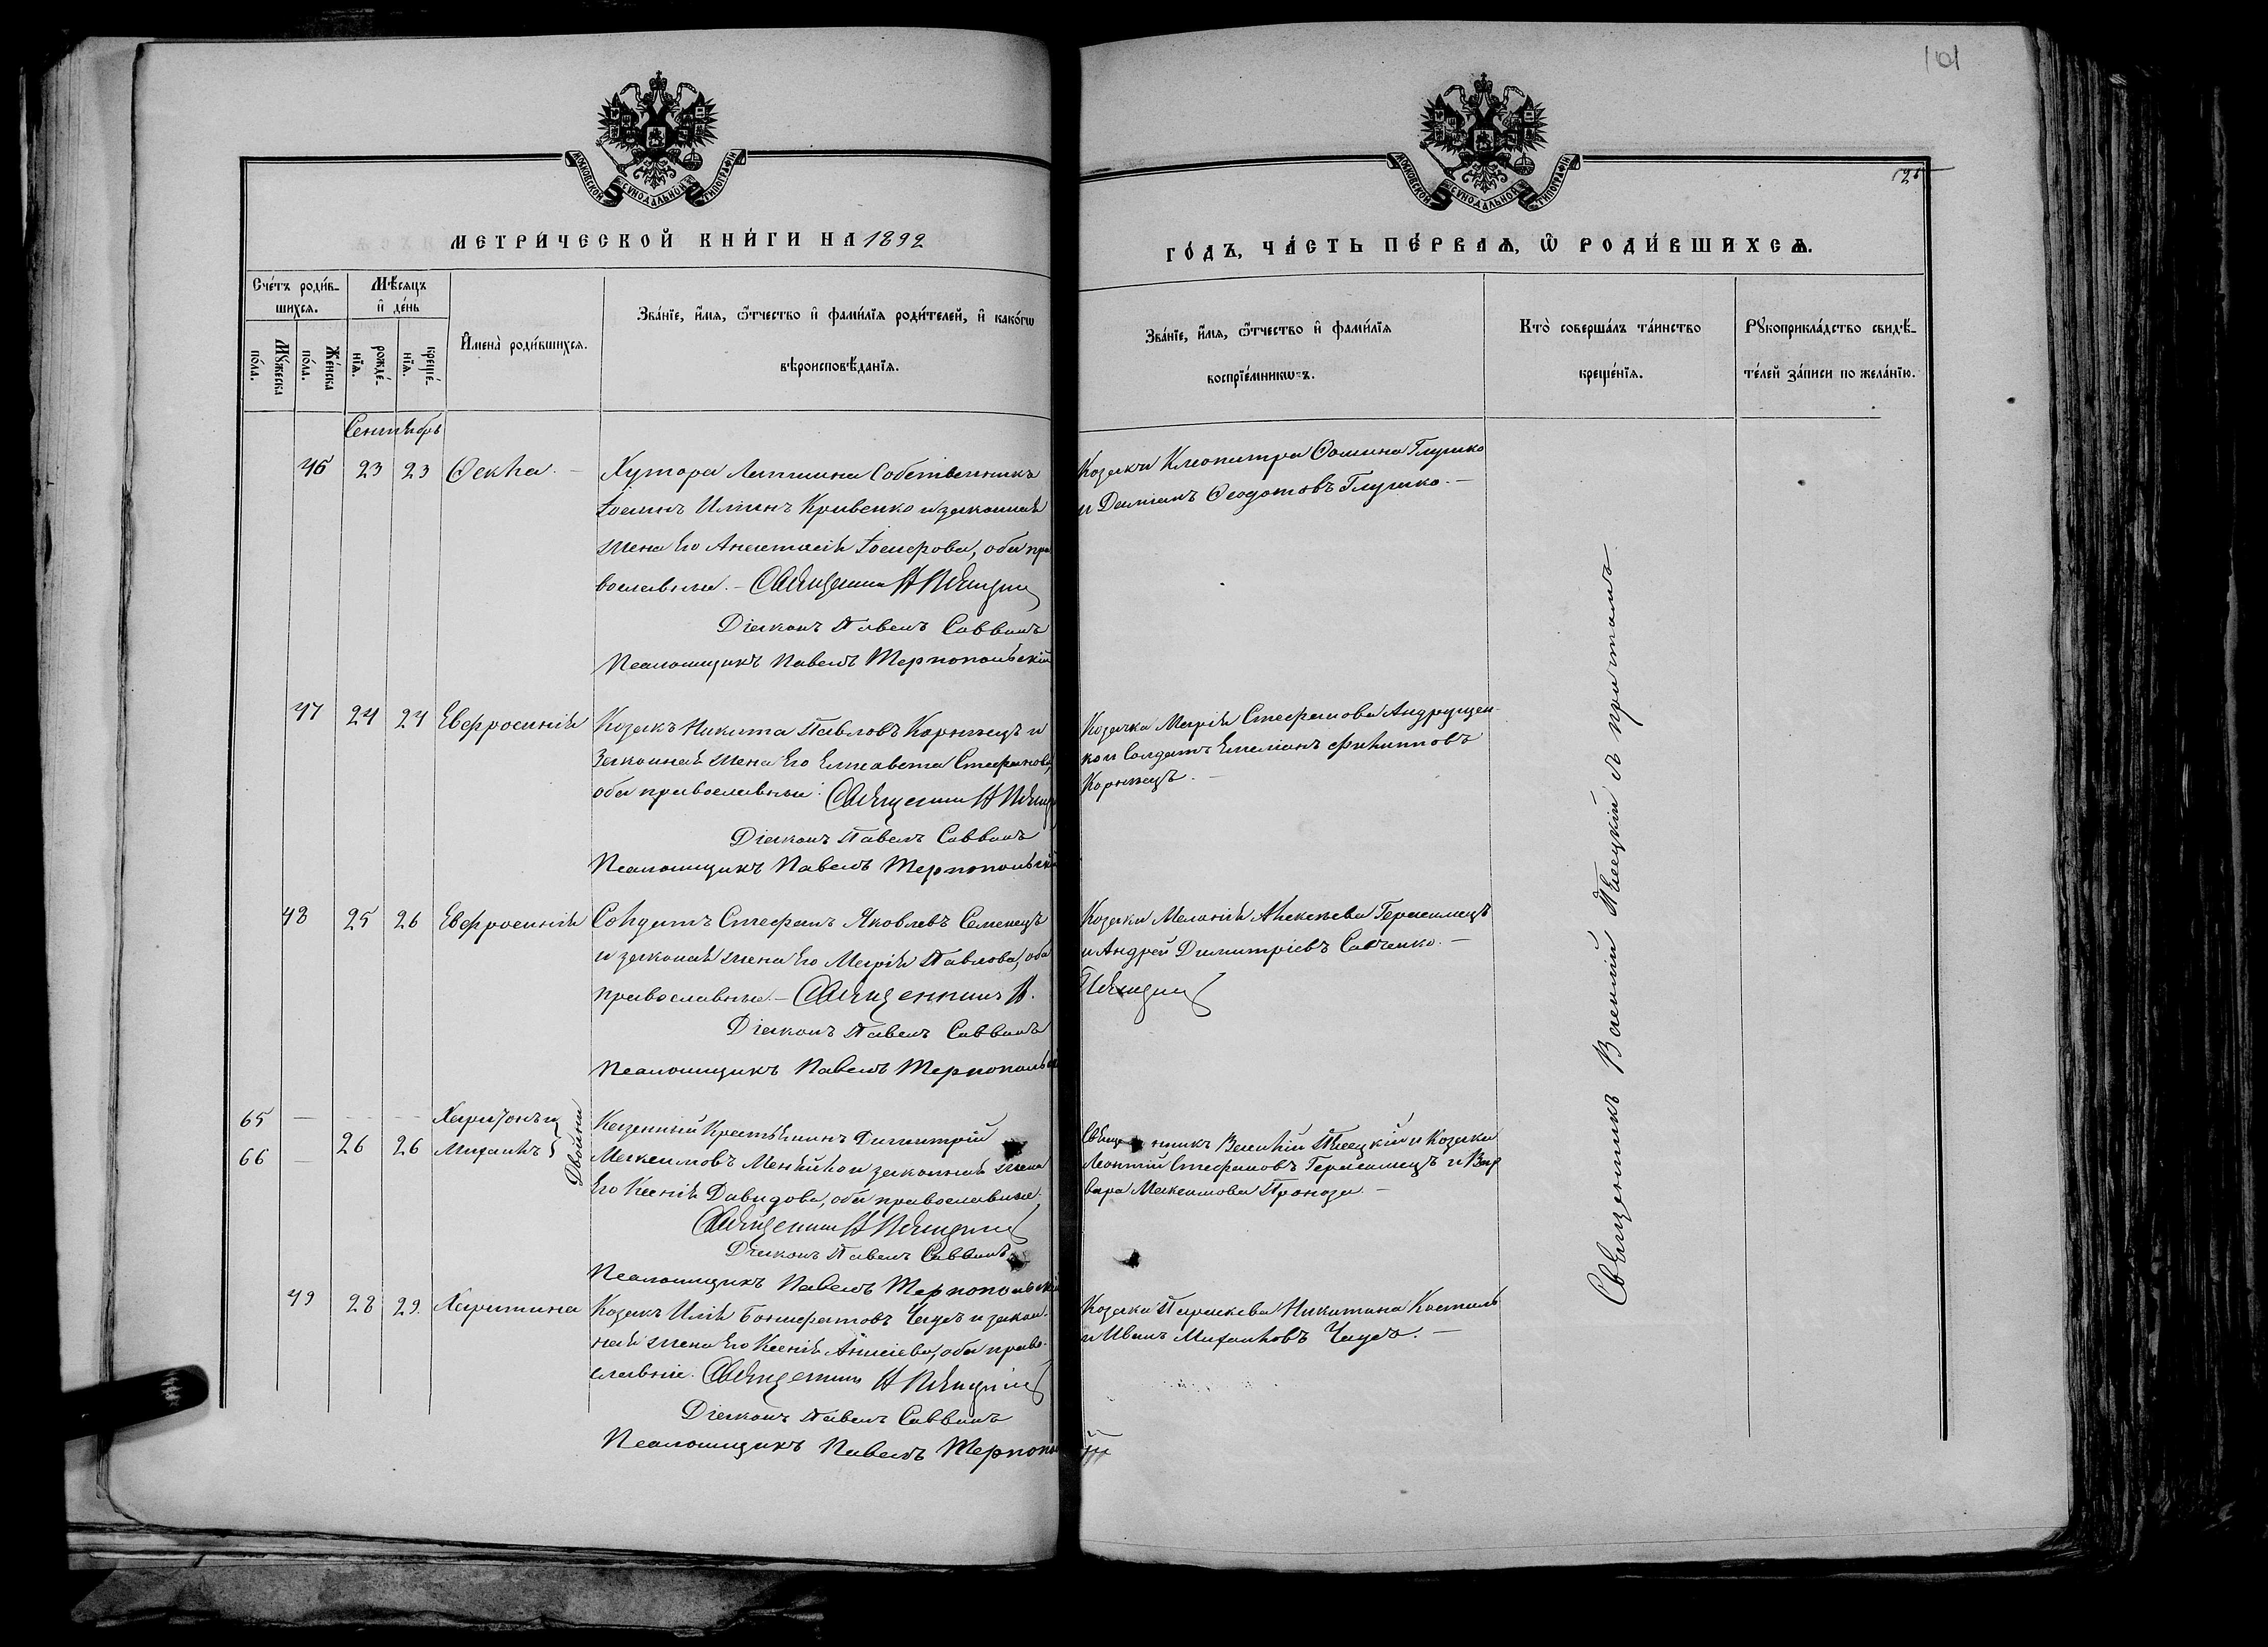 101
МОСКОВСКОЙ СѴНОДАЛЬНОЙ ТИПОГРАФІИ
МОСКОВСКОЙ СѴНОДАЛЬНОЙ ТИПОГРАФІИ
МЕТРИ́ЧЕСКОЙ КНИ́ГИ НА 1892
ГО́ДЪ, ЧА́СТЬ ПЕ́РВАѦ, Ѡ РОДИ́ВШИХСѦ.
Сче́тъ роди́в-
шихсѧ.
Мѣ́сѧцъ
и҆ де́нь
Мꙋ́жеска
по́ла.
Же́нска
по́ла.
рожде́-
нїѧ.
креще́-
нїѧ.
И҆мена̀ роди́вшихсѧ.
Зва́нїе, и҆́мѧ, ѻ҆́тчество и҆ фами́лїѧ роди́телей, и҆ како́гѡ
вѣроисповѣ́данїѧ.
Зва́нїе, и҆́мѧ, ѻ҆́тчество и҆ фами́лїѧ
воспрїе́мникѡвъ.
Кто̀ соверша́лъ та́инство
креще́нїѧ.
Рꙋкоприкла́дство свидѣ́-
телей за́писи по жела́нїю.
Сентябрь
46 23 23 Ѳекла. –
Хутора Собственникъ
Іоаннъ Кривенко и законная
жена его Анастасія Іосифова, оба пра
вославные. – Священникъ
Діаконъ Павелъ Саввинъ
Псаломщикъ Павелъ Тернопольскій
Козаки Клеопатра Ѳомина Глушко
и Даміанъ Ѳеодотовъ Глушко. –
47 24 24 Евфросинія
Козакъ Никита Павловъ Корнпецъ и
законная жена его Елисавета Стефанова,
оба православные. Священникъ
Діаконъ Павелъ Саввинъ
Псаломщикъ Павелъ Тернопольскій
Козачка Марія Стефанова Андрущен-
ко и Солдатъ Емеліанъ Филипповъ
48 25 26 Евфросинія
Солдатъ Стефанъ Яковлевъ Семенецъ
и законная жена его Марія Павлова, оба
православные. – Священникъ В.
Діаконъ Павелъ Саввинъ
Псаломщикъ Павелъ Тернопольскій
Козаки Меланія Алексіева Герасимецъ
и Андрей Димитріевъ Савченко. –
65 – Харитонъ и
66 – 26 26 Михаилъ
Двойни
Казенный Крестьянинъ Димитрій
Максимовъ и законная жена
его Ксенія Давидова, оба православные.
Священникъ
Діаконъ Павелъ Саввинъ
Псаломщикъ Павелъ Тернопольскій
Священникъ Василій и Козаки
Леонтій Стефановъ Герасимецъ и Вар
вара Максимова Проноза. –
49 28 29. Харитина
Козакъ Илія Бонифатовъ Чауръ и закон-
ная жена его Ксенія Анисіева, оба право-
славные. Священникъ
Діаконъ Павелъ Саввинъ
Псаломщикъ Павелъ Тернополь
Козаки Параскева Никитина
и Иванъ Михаиловъ Чауръ. –
Священникъ Василій съ причтомъ